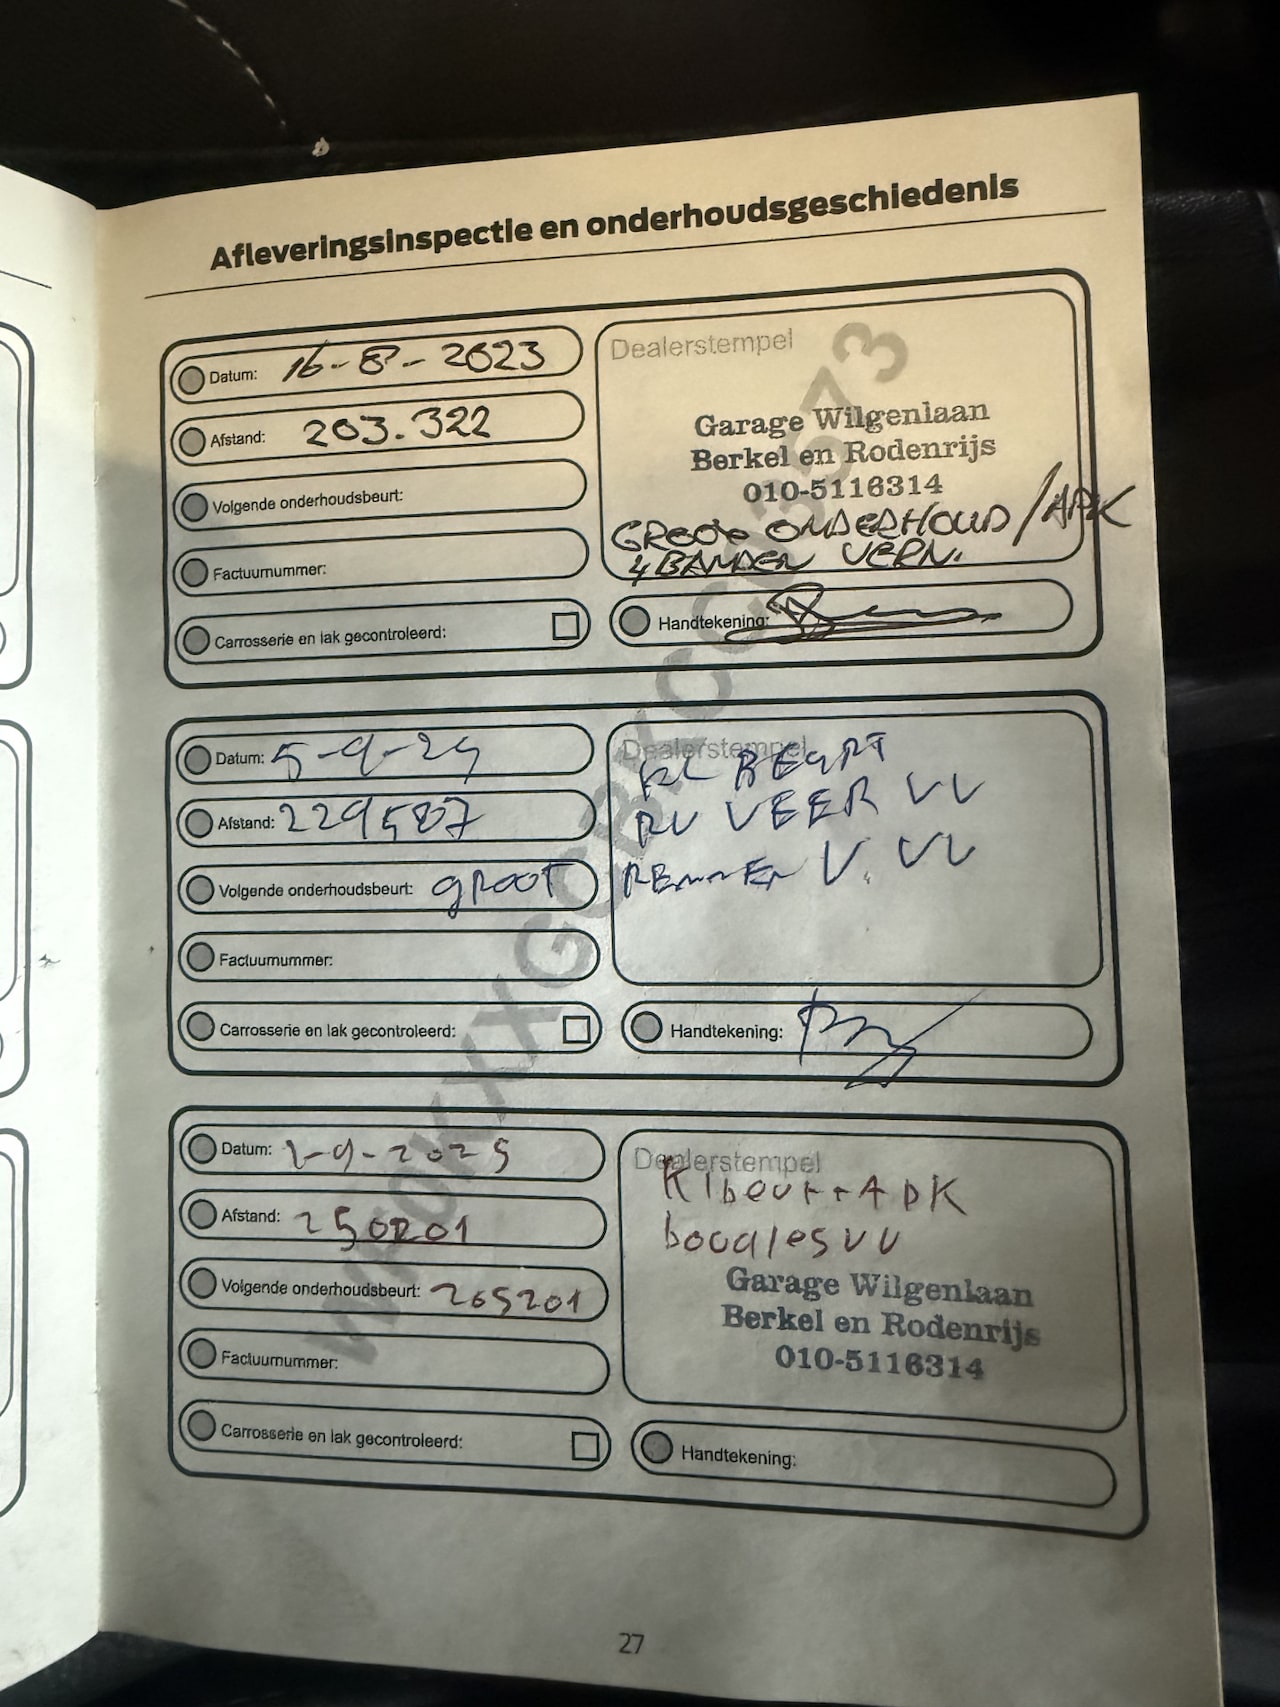 Afleveringsinspectie en onderhoudsgeschiedenis
Datum: 16-8-2023
Afstand: 203.322
Volgende onderhoudsbeurt:
Factuurnummer:
Carrosserie en lak gecontroleerd:
Dealerstempel
Garage Wilgenlaan
Berkel en Rodenrijs
010-5116314
GROOT ONDERHOUD / APK
4 BANDEN VERN.
Handtekening:
Datum: 5-9-24
Afstand: 229587
Volgende onderhoudsbeurt: groot
Factuurnummer:
Carrosserie en lak gecontroleerd:
Dealerstempel
KL BEURT
RV VEER VV
REMMEN V. VV
Handtekening:
Datum: 1-9-2025
Afstand: 250201
Volgende onderhoudsbeurt: 265201
Factuurnummer:
Carrosserie en lak gecontroleerd:
Dealerstempel
Klbeurt+APK
bougies VV
Garage Wilgenlaan
Berkel en Rodenrijs
010-5116314
Handtekening:
27